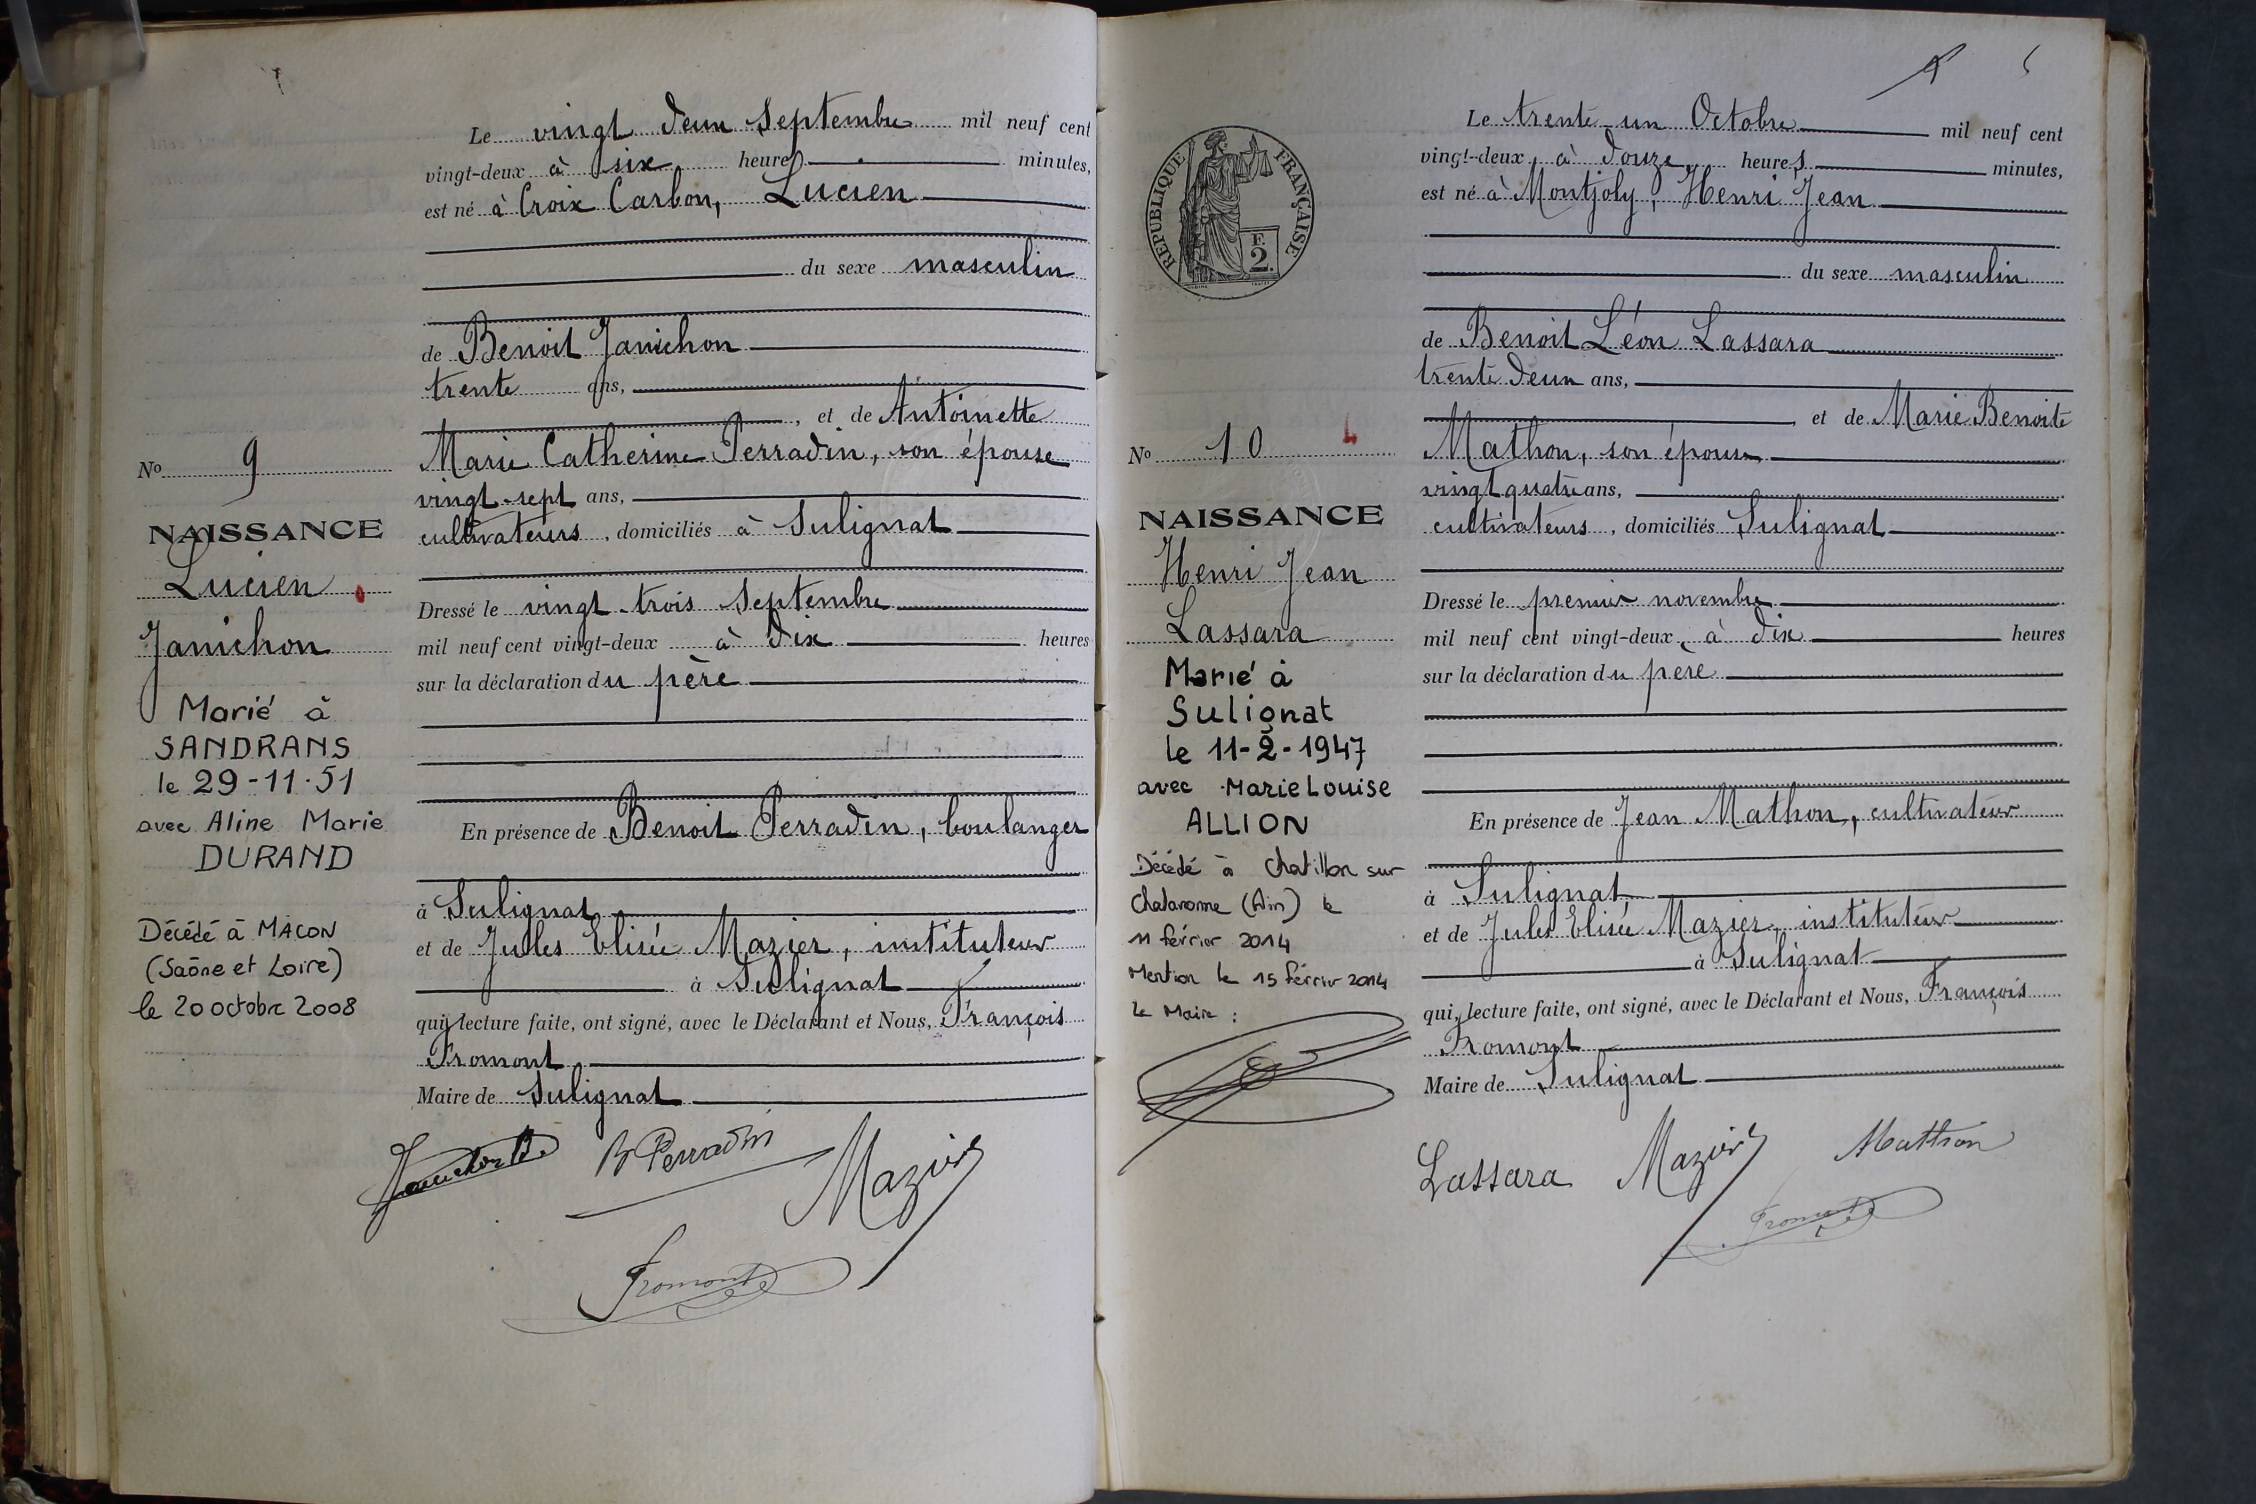 Le vingt deux Septembre mil neuf cent
vingt-deux à six heures minutes,
est né à Croix Carbon, Lucien
du sexe masculin
de Benoit Janichon
trente ans,
, et de Antoinette
Marie Catherine Perradin, son épouse
vingt-sept ans,
cultivateurs, domiciliés à Sulignat
Dressé le vingt-trois Septembre
mil neuf cent vingt-deux à dix heures
sur la déclaration du père
En présence de Benoit Perradin, boulanger
à Sulignat
et de Jules Elisée Mazier, instituteur
à Sulignat
qui, lecture faite, ont signé, avec le Déclarant et Nous, François
Fromont
Maire de Sulignat
B Perradin
Mazier
Fromont
No 9
NAISSANCE
Lucien
Janichon
Marié à
SANDRANS
le 29-11-51
avec Aline Marie
DURAND
Décédé à MACON
(Saône et Loire)
le 20 octobre 2008
REPUBLIQUE FRANÇAISE
F.
2.
No 10
NAISSANCE
Henri Jean
Lassara
Marié à
Sulignat
le 11-2-1947
avec Marie Louise
ALLION
Décédé à Chatillon sur
Chalaronne (Ain) le
11 février 2014
Mention le 15 février 2014
Le Maire :
Le trente-un Octobre mil neuf cent
vingt-deux, à douze heures minutes,
est né à Montjoly, Henri Jean
du sexe masculin
de Benoit Léon Lassara
trente deux ans,
et de Marie Benoite
Mathon, son épouse
vingt quatre ans,
cultivateurs, domiciliés Sulignat
Dressé le premier novembre
mil neuf cent vingt-deux, à dix heures
sur la déclaration du père
En présence de Jean Mathon, cultivateur
à Sulignat
et de Jules Elisée Mazier, instituteur
à Sulignat
qui, lecture faite, ont signé, avec le Déclarant et Nous, François
Fromont
Maire de Sulignat
Lassara Mazier Mathon
Fromont